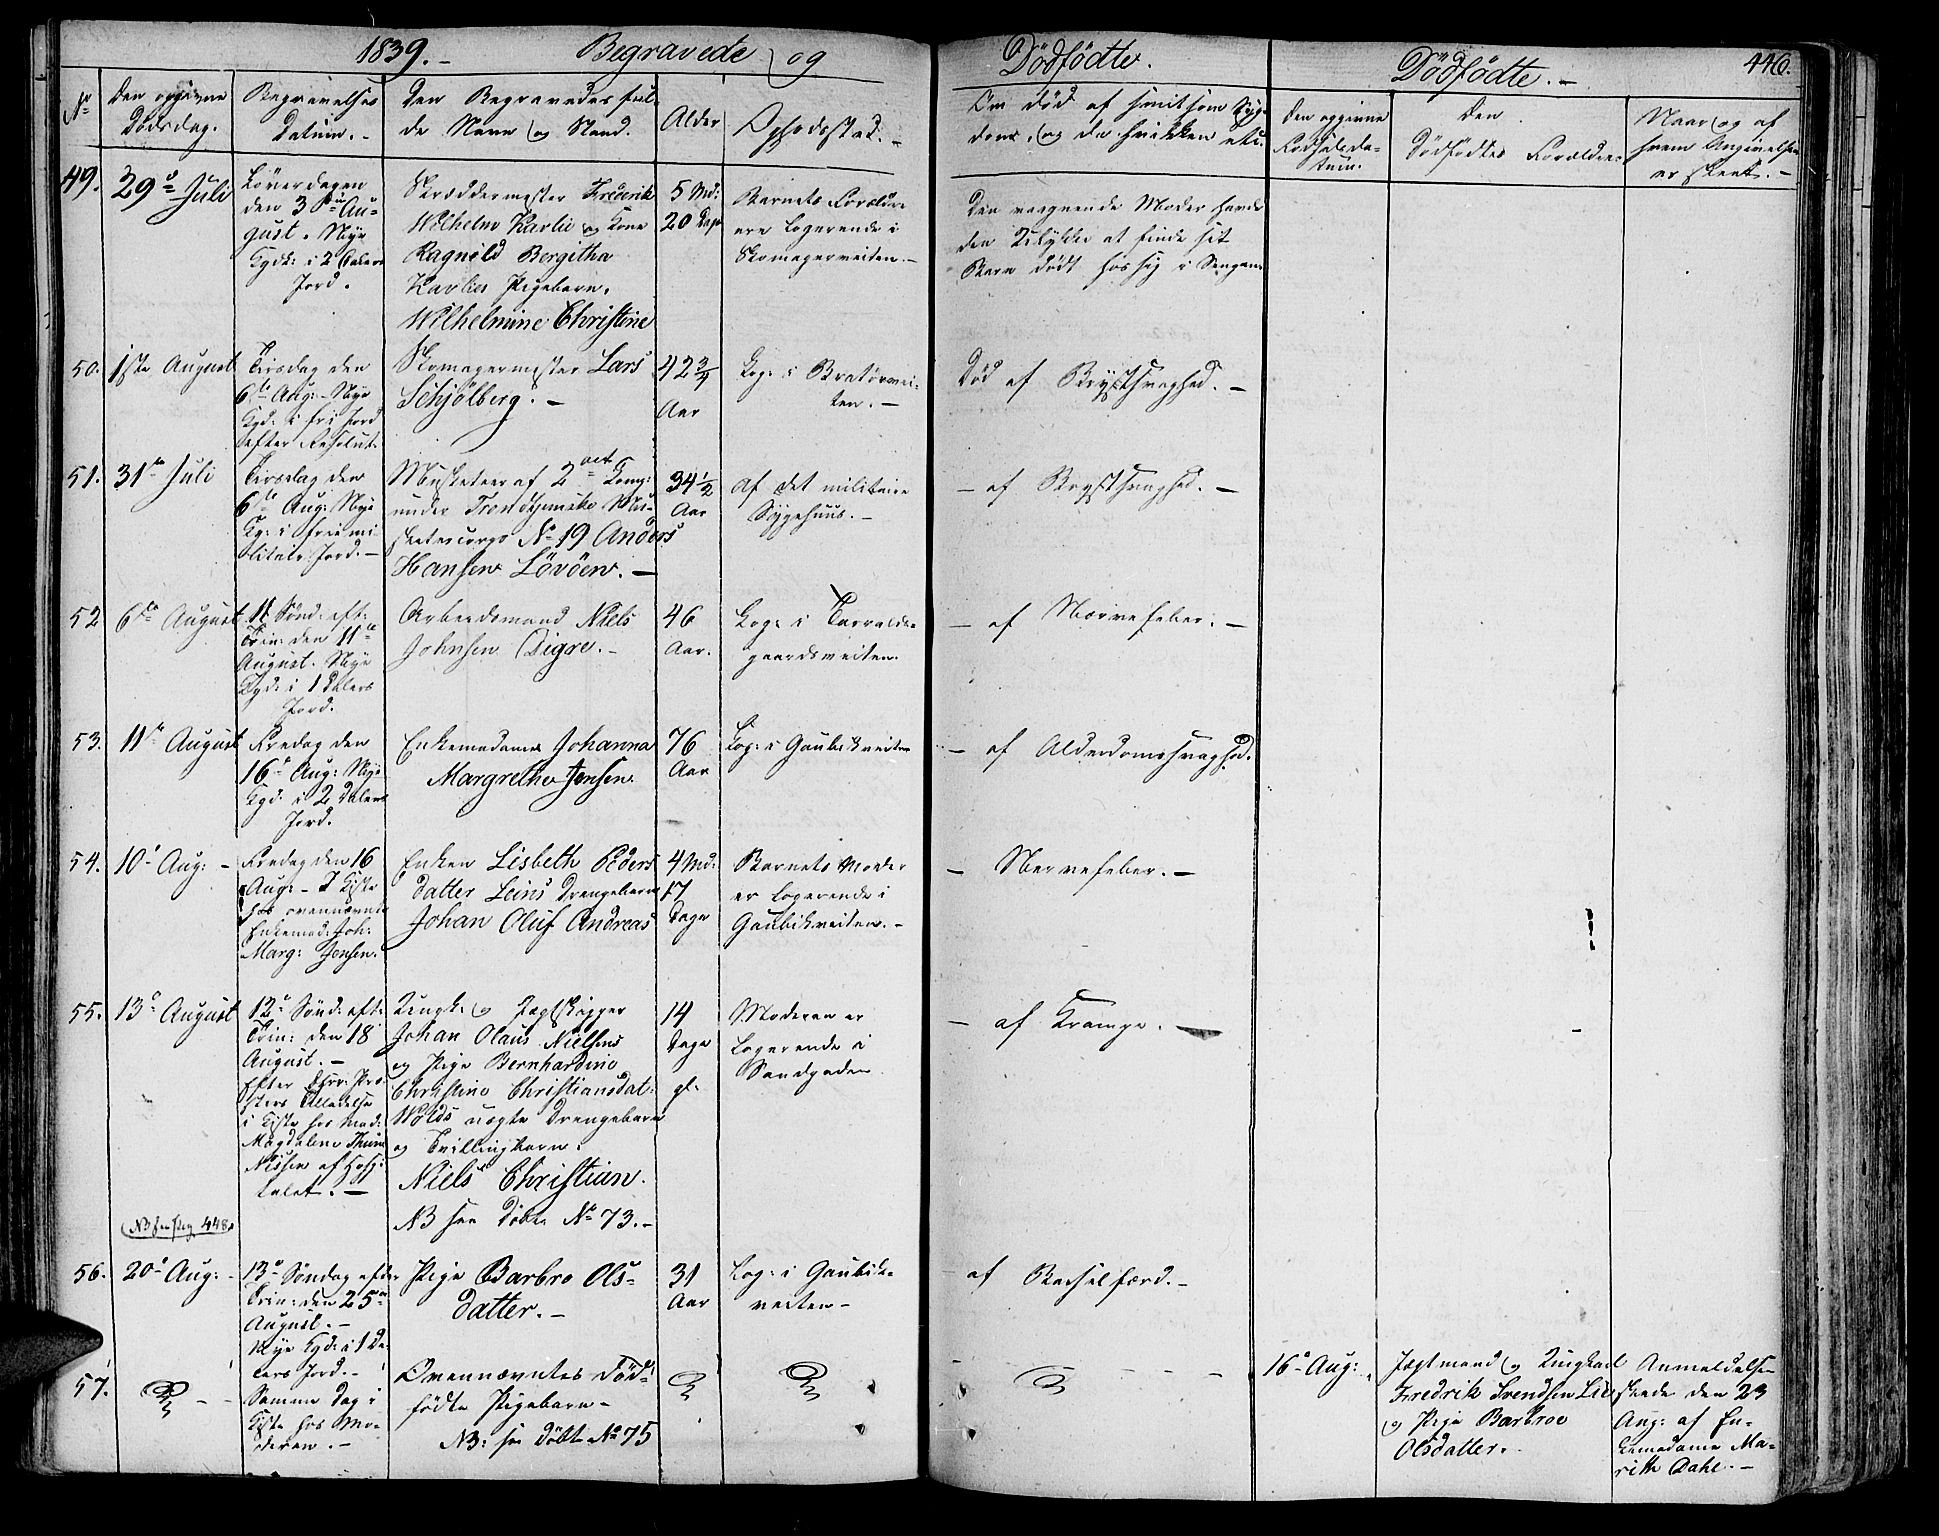 1839. – Begravede og
Dödfödte.
Dödfödte. –
446.
No
Den opgivne
Dödsdag.
Begravelses
Datum. –
Den Begravedes ful-
de Navn og Stand.
Alder
Opholdssted. –
Om död af smitsom Syg-
dom, og da hvilken etc.
Den opgivne
Födselsda-
tum.
Den
Dödfödtes Forældre
Naar og af
hvem Angivelsen
er skeet. –
49.
29de Juli
Löverdagen
den 3die Au-
gust. Nye
Kgdk: i 2 Dalers
Jord.
Skræddermester Frederik
Wilhelm Karlie og Kone
Ragnild Bergitha
Karlies Pigebarn.
Wilhelmine Christine
5 Md:
20 Dage
Barnets Forældre
ere Logerende i
Skomagerveiten. –
Den vaagnende Moder havde
den Ulykke at finde sit
Barn dödt hos sig i Sengen
50.
1ste August
Tirsdag den
6te Aug: Nye
Kgd: i fri Jord
efter Resolut:
Skomagermester Lars
Schjölberg. –
42 3/4
Aar
Log: i Bratörvei-
ten. –
Död af Brystsvaghed. –
51.
31te Juli
Tirsdag den
6te Aug: Nye
Kg: i frie mi-
litair Jord. –
Musketeer af 2det Komp:
under Trondhjemske Mus-
keteercorps No 19 Anders
Hansen Lövöen. –
34 1/2
Aar
Af det militaire
Sygehuus. –
– af Brystsvaghed. –
52
6te August
11 Sönd: eft:
Trin: den 11te
August. Nye
Kgd: i 1 Dalers
Jord.
Arbeidsmand Niels
Johnsen Digre. –
46
Aar.
Log: i Torvalds-
gaardsveiten.
– af Nervefeber. –
53.
11te August
Fredag den
16de Aug: Nye
Kgd: i 2 Dalers
Jord.
Enkemadame Johanna
Margrethe Jensen
76
Aar
Log: i Gaubekveiten
– af Alderdomssvaghed.
54.
10de Aug: –
Fredag den 16
Aug: – I Kiste
hos ovennævnte
Enkemad: Joh:
Marg: Jensen.
Enken Lisbeth Peders
datter Leins Drengebarn
Johan Oluf Andreas
4 Md:
17
Dage
Barnets Moder
er Logerende i
Gaubekveiten. –
– Nervefeber. –
55.
13de August
12te Sönd: eft:
Trin: den 18
August. –
Efter Hrr: Pro-
stens Tilladelse
i Kiste hos Mad:
Magdalene
Nissen af Hosp:
talet. –
Ungk: og Jægtskipper
Johan Olaus Nielsens
og Pige Bernhardine
Christine Christiansdat:
Wolds uægte Drengebarn
og Tvillingbarn.
Niels Christian.
NB see Döbte No 73. –
14
Dage
gl.
Moderen er
Logerende i
Sandgaden
– af Krampe. –
NB see pag 448
56.
20de Aug: –
13de Söndag efter
Trin: den 25de
August. –
Nye Kgd: i 1 Da-
lers Jord. –
Pige Barbro Ols-
datter. –
31
Aar
Log: i Gaubek-
veiten –
af Barselfærd. –
57.
Samme Dag i
Kiste hos Mo-
deren. –
Ovennævntes Död-
födte Pigebarn –
NB: see Döbte No 75
16de Aug:
Jægtmand og Ungkarl
Fredrik Svendsen Lie
og Pige Barbroe
Olsdatter. –
Anmeldelse
skede den 23
Aug: af En-
kemadame Ma-
rith Dahl. –